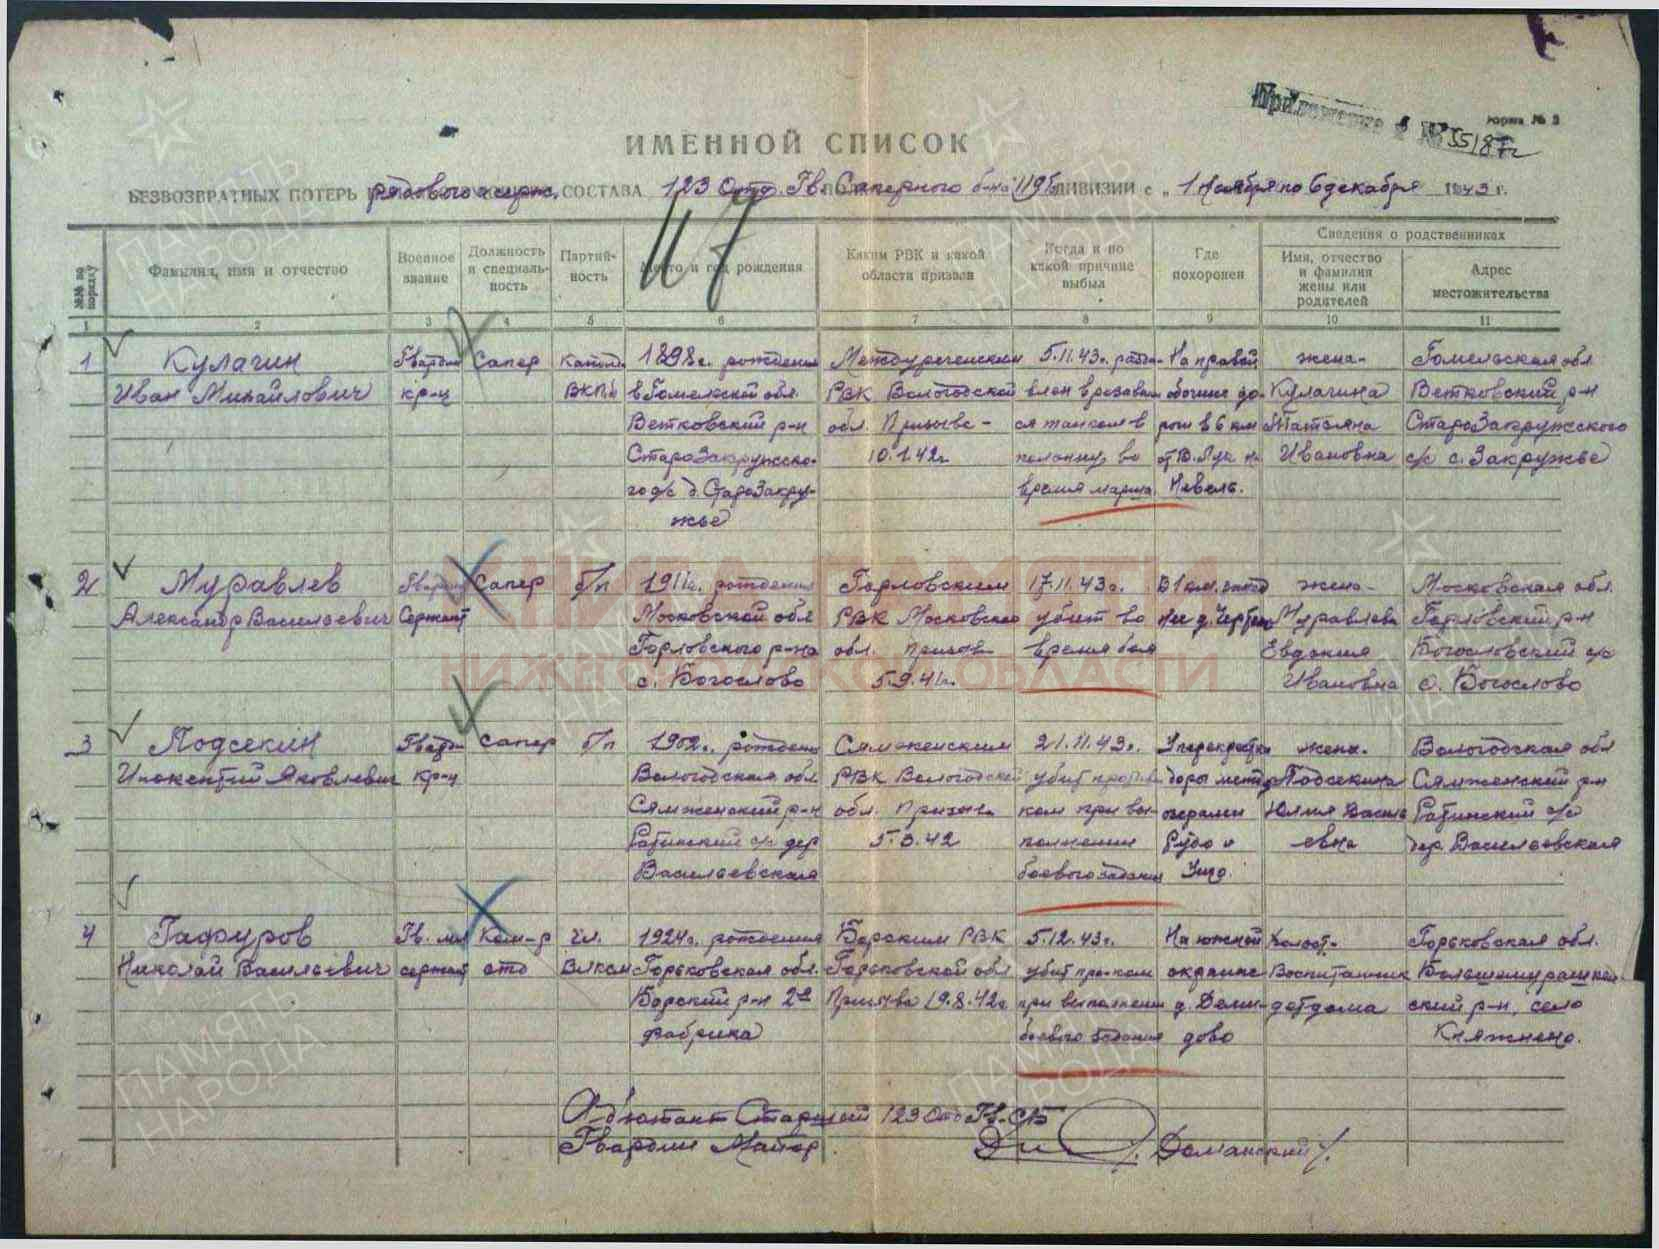 Приложение к № 55187г
Форма № 2
ИМЕННОЙ СПИСОК
БЕЗВОЗВРАТНЫХ ПОТЕРЬ рядового и серж. СОСТАВА 123 Отд. Гв. Саперного б-на 119 ДИВИЗИИ с „1 ноября по 6 декабря 1943 г.
№№ по порядку
Фамилия, имя и отчество
Военное звание
Должность и специальность
Партийность
Место и год рождения
Каким РВК и какой области призван
Когда и по какой причине выбыл
Где похоронен
Сведения о родственниках
Имя, отчество и фамилия жены или родителей
Адрес местожительства
1 2 3 4 5 6 7 8 9 10 11
1 Кулагин Гвардии Сапер 1898г. рождения Междуреченским 5.11.43г. На правой жена- Гомельская обл
Иван Михайлович кр-ц ВКПб в Гомельской обл. РВК Вологодской обочине до- Кулагина Ветковский р-н
Ветковский р-н обл. Призыва - роги в 6 км Татьяна СтароЗакружского
СтароЗакружско- 10.1.42г. колонну во Ивановна с/с с. Закружье
го с/с д. СтароЗакру- время марша. Невель.
жье
2 Муравлев Гвардии Сапер б/п 1911г. рождения Горловским 17.11.43г. В 1 км. жена- Московская обл.
Александр Васильевич Сержант Московской обл РВК Московской убит во нее д. Муравлева Горловский р-н
Горловского р-на обл. Призыв время боя Евдокия Богословский с/с
с. Богослово 5.9.41г. Ивановна с. Богослово
3 Подсекин Гвардии Сапер б/п 1902г. рождения Сямженским 21.11.43г. У перекрестка жена. Вологодская обл
Инокентий Яковлевич кр-ц Вологодская обл РВК Вологодской убит против- Подсекина Сямженский р-н
Сямженский р-н обл. Призыва ком при вы- озерами Юлия Василь Ратинский с/с
Ратинский с/с дер 5.3.42 полнении евна дер. Васильевская
Васильевская боевого задания
4 Гафуров Гв. мл Ком-р чл. 1924г. рождения Борским РВК 5.12.43г. На южной Холост- Горьковская обл.
Николай Васильевич сержант отд ВЛКСМ Горьковская обл. Горьковской обл убит пр-ком окраине Воспитанник Большемурашкин-
Борский р-н 2ая Призыва 19.8.42г. при выполнении детдома ский р-н, село
Фабрика боевого задания Княжнено.
Адъютант Старший 123 Отд Гв. СБ
Гвардии Майор Доманский
ПАМЯТЬ НАРОДА
КНИГА ПАМЯТИ
НИЖЕГОРОДСКОЙ ОБЛАСТИ